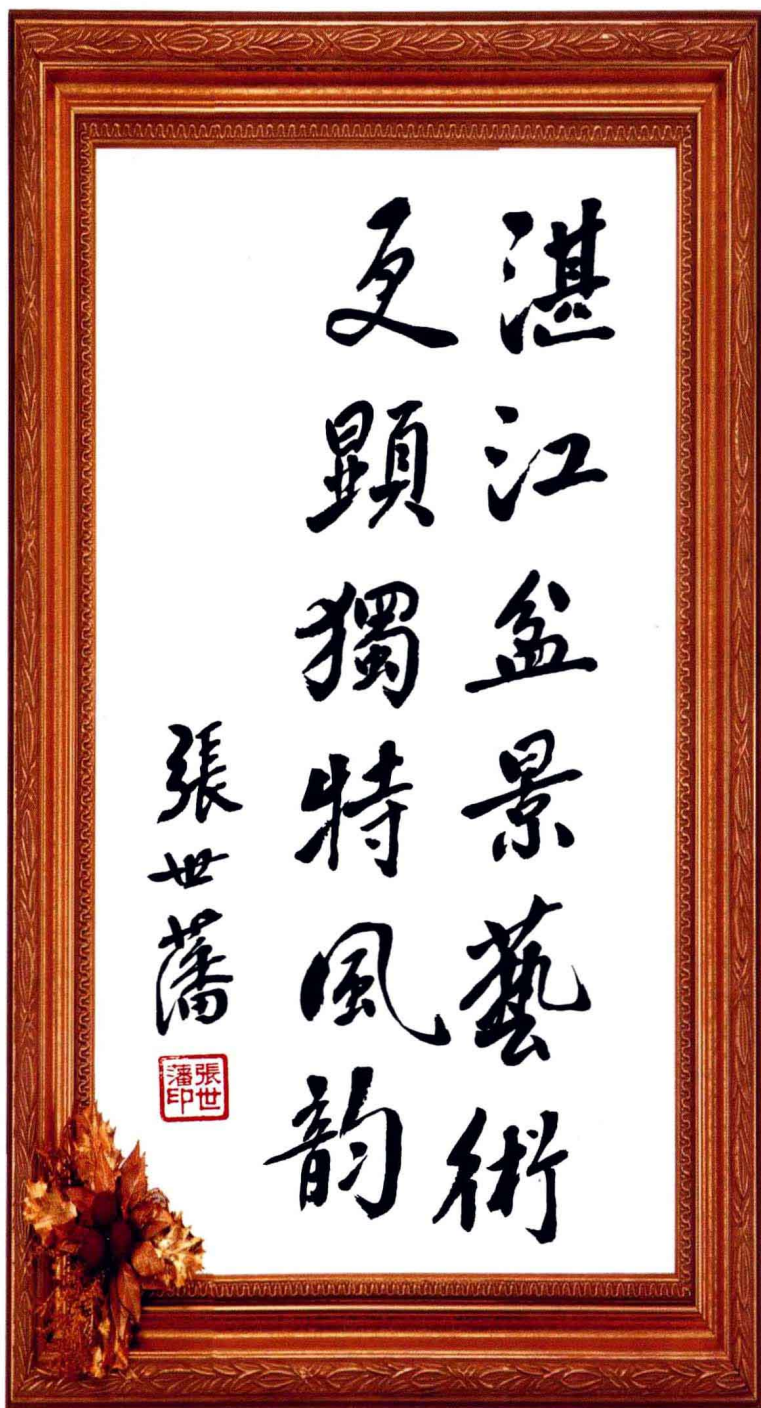 湛江盆景藝術
更顯獨特風韵
張世藩
張世
藩印